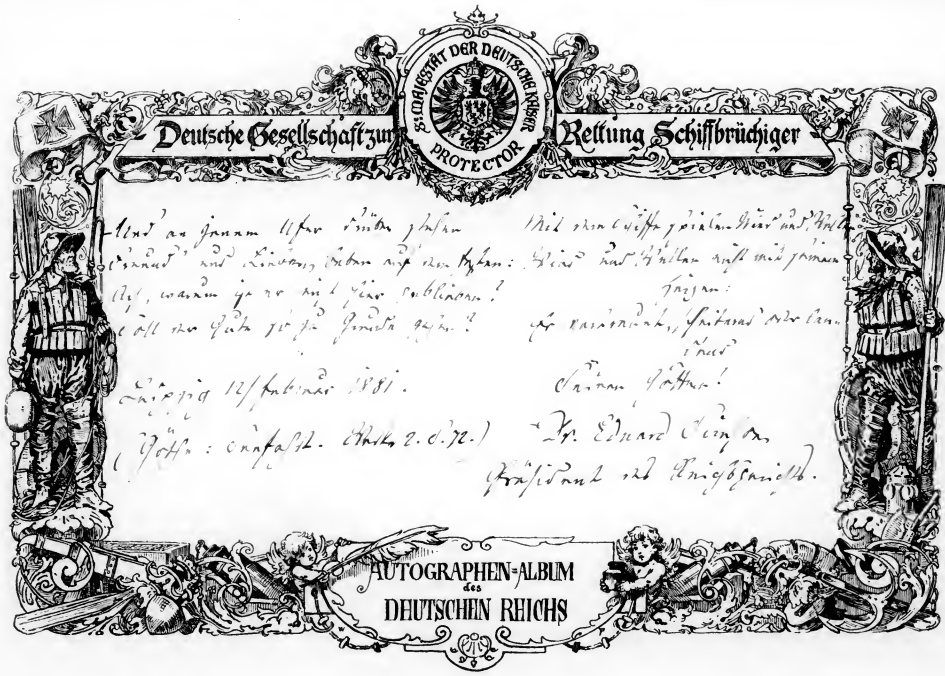 SE. MAJESTÄT DER DEUTSCHE KAISER
PROTECTOR
Deutsche Gesellschaft zur Rettung Schiffbrüchiger
Und an jenem Ufer drüben stehen
Freund' und Lieben, beben auf dem Festen:
Ach, warum ist er nicht hier geblieben!
Soll der Gute so zu Grunde gehen?
Leipzig 12/Februar 1881.
(Göthe: Seefahrt. Werke 2. S. 72.)
Mit dem Schiffe spielen Wind und
Wind und Wellen nicht mit seinem
Herzen:
scheiternd oder lan-
dend
Seinen Göttern!
Dr. Eduard Simson,
Präsident des Reichsgerichts.
AUTOGRAPHEN=ALBUM
des
DEUTSCHEN REICHS